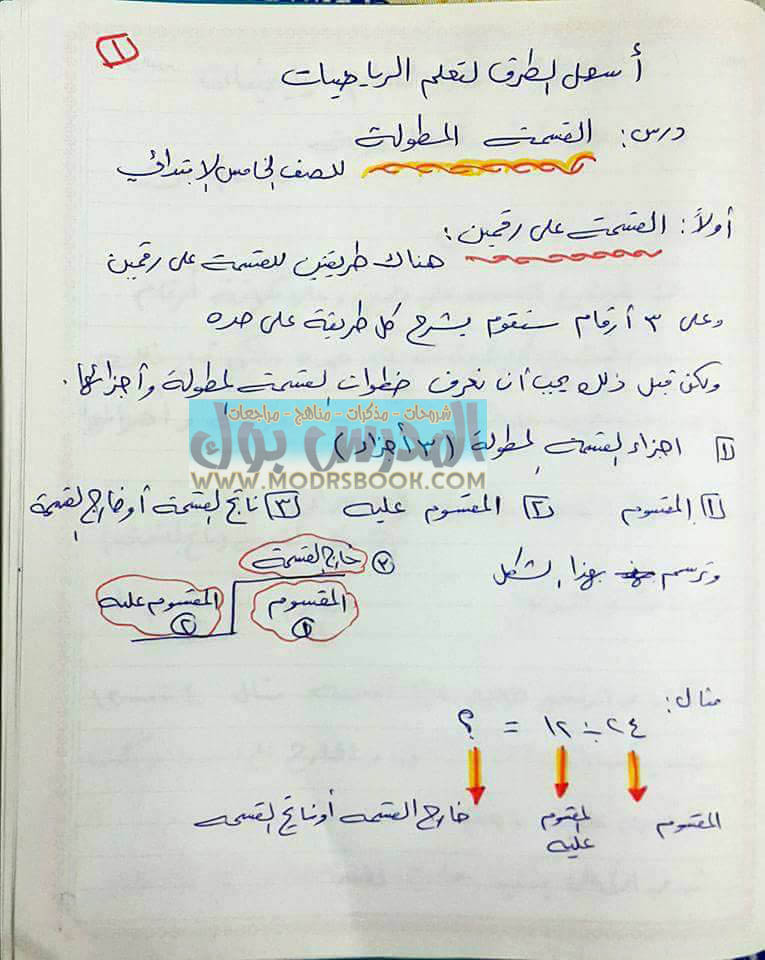 ١
أسهل الطرق لتعلم الرياضيات
درس: القسمة المطولة
للصف الخامس الابتدائي
أولاً: القسمة على رقمين:
هناك طريقتين للقسمة على رقمين
وعلى ٣ أرقام سنقوم بشرح كل طريقة على حده
ولكن قبل ذلك يجب أن نعرف خطوات القسمة المطولة وأجزائها.
شروحات - مذكرات - مناهج - مراجعات
المدرس بوك
WWW.MODRSBOOK.COM
١ اجزاء القسمة المطولة (٣ أجزاء)
١ المقسوم ٢ المقسوم عليه ٣ ناتج القسمة أو خارج القسمة
وترسم بهذا الشكل
٣ خارج القسمة
المقسوم ١
المقسوم عليه ٢
مثال:
٢٤ ÷ ١٢ = ؟
المقسوم
المقسوم عليه
خارج القسمه أو ناتج القسمه